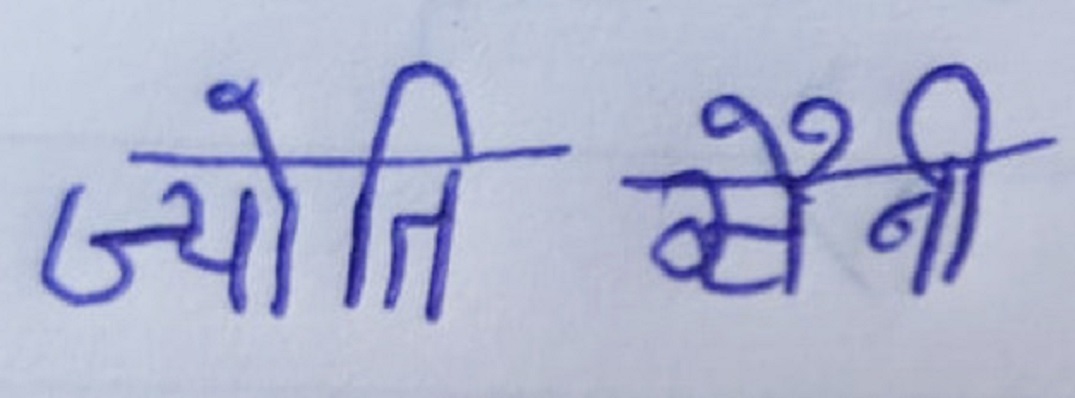 ज्योति सैनी